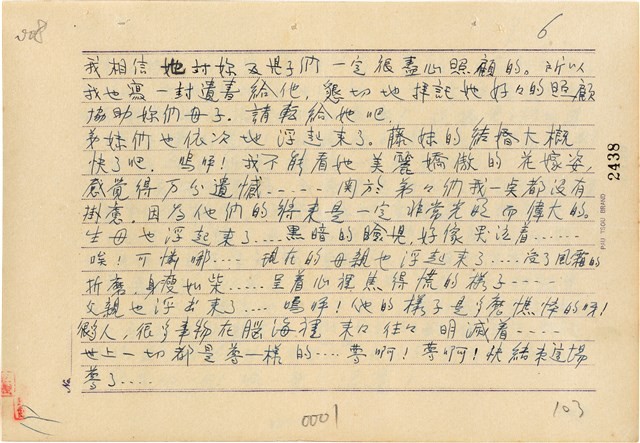 208
6
我相信她对妳及児子們一定很盡心照顧的。所以
我也寫一封遺書給他，懇切地拝託她好々的照顧
協助妳們母子。請轉給她吧。
弟妹們也依次地浮起來了。藤妹的結婚大概
快了吧。嗚呼！我不能看她美麗嬌傲的花嫁姿，
感覚得万分遺憾……関於弟々們我一点都没有
掛慮，因為他們的将来是一定非常光明而偉大的。
生母也浮起来了……黒暗的臉児，好像哭泣着……
唉！可憐哪……現在的母親也浮起来了……受了風霜的
折磨，身瘦如柴……呈着心裡焦得慌的樣子……
父親也浮出來了……嗚呼！他的樣子是多麽憔悴的呀！
個人，很多事物在腦海裡来々往々明滅着……
世上一切都是夢一様的……夢啊！夢啊！快結束這場
夢了……
2438
PIU TOGU BRAND
No.
0001
103